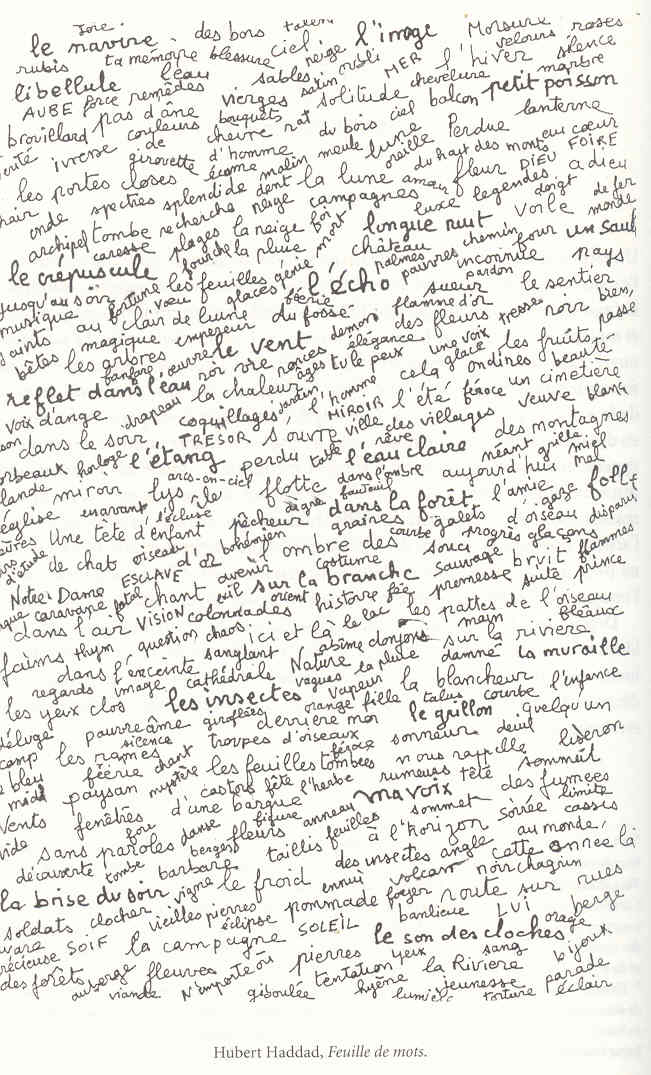 Joie. des bois
le navire. rubis ta mémoire blessure ciel neige l'image Morsure velours roses
libellule l'eau sables satin oubli MER l'hiver silence
AUBE force remèdes vierges bouquets solitude chevelure petit poisson marbre
brouillard pas d'âne chevre rat du bois ciel balcon lanterne
ivresse de couleurs d'homme malin meule lune oreille Perdue au cœur
les portes closes girouette écume la lune du haut des monts FOIRE
onde spectres splendide dent campagnes fleur DIEU adieu
archipel tombe recherche neige luxe legendes doigt de fer
caresse plages la neige foi mort longue nuit voile monde
le crépuscule la pluie château chemin four un saul
jusqu'au soir fortune les feuilles génie l'écho palmes pauvres inconnue pays
musique vœu glaces féerie sueur pardon le sentier
saints au clair de lune du fossé flamme d'or noir bien,
bêtes les arbres magique empereur élégance des fleurs tresses passé
fanfare œuvre le vent noces ages tu le peux une voix les fruits
reflet dans l'eau la chaleur jardin l'homme cela glace ondines beauté
voix d'ange drapeau coquillages MIROIR l'été féroce un cimetière
dans le soir TRESOR s'ouvre ville des villages veuve blanc
corbeaux horloge l'étang perdu table rêve l'eau claire des montagnes
miroir lys arc-en-ciel île flotte dans l'ombre aujourd'hui néant grille miel mal
église en avant l'écluse aigre fauteuil dans la forêt l'amie gaze folle
Une tête d'enfant pêcheur graines galets d'oiseau disparu
d'étude de chat oiseau bohémien l'ombre des courbe progrès glaçons
Notre-Dame ESCLAVE d'or costume souci sauvage bruit flammes
caravane fatal chant avenir sur la branche promesse suite prince
dans l'air VISION exil colonnades orient histoire fée les pattes de l'oiseau
faims thym question chaos ici et là le lac main bleaux
dans l'enceinte sanglant abîme donjons sur la rivière
regards image cathédrale Nature vagues la pluie damné la muraille
les yeux clos les insectes vapeur la blancheur l'enfance
déluge pauvre âme giroflées orange fille talus courbe
derrière moi le grillon quelqu'un
camp les rames silence troupes d'oiseaux féroce sonneur deuil liseron
bleu féérie chant les feuilles tombées nous rappelle sommeil
midi paysan mystère castors fête l'herbe rumeurs tête des fumées
vents fenêtres d'une barque ma voix limite
vide sans paroles fou danse figure anneau sommet soirée cassis
découverte bergers fleurs taillis feuilles à l'horizon au monde,
tombe barbare des insectes angle cette année là
la brise du soir vigne le froid ennui volcan noir chagrin
soldats clocher vieilles pierres pommade foyer route sur rues
éclipse SOLEIL banlieue LUI orage berge
précieuse SOIF la campagne le son des cloches
des forêts auberge fleuves N'importe où pierres yeux sang bijoux
viande giboulée tentation hyène la Rivière jeunesse parade
lumière torture éclair
Hubert Haddad, Feuille de mots.